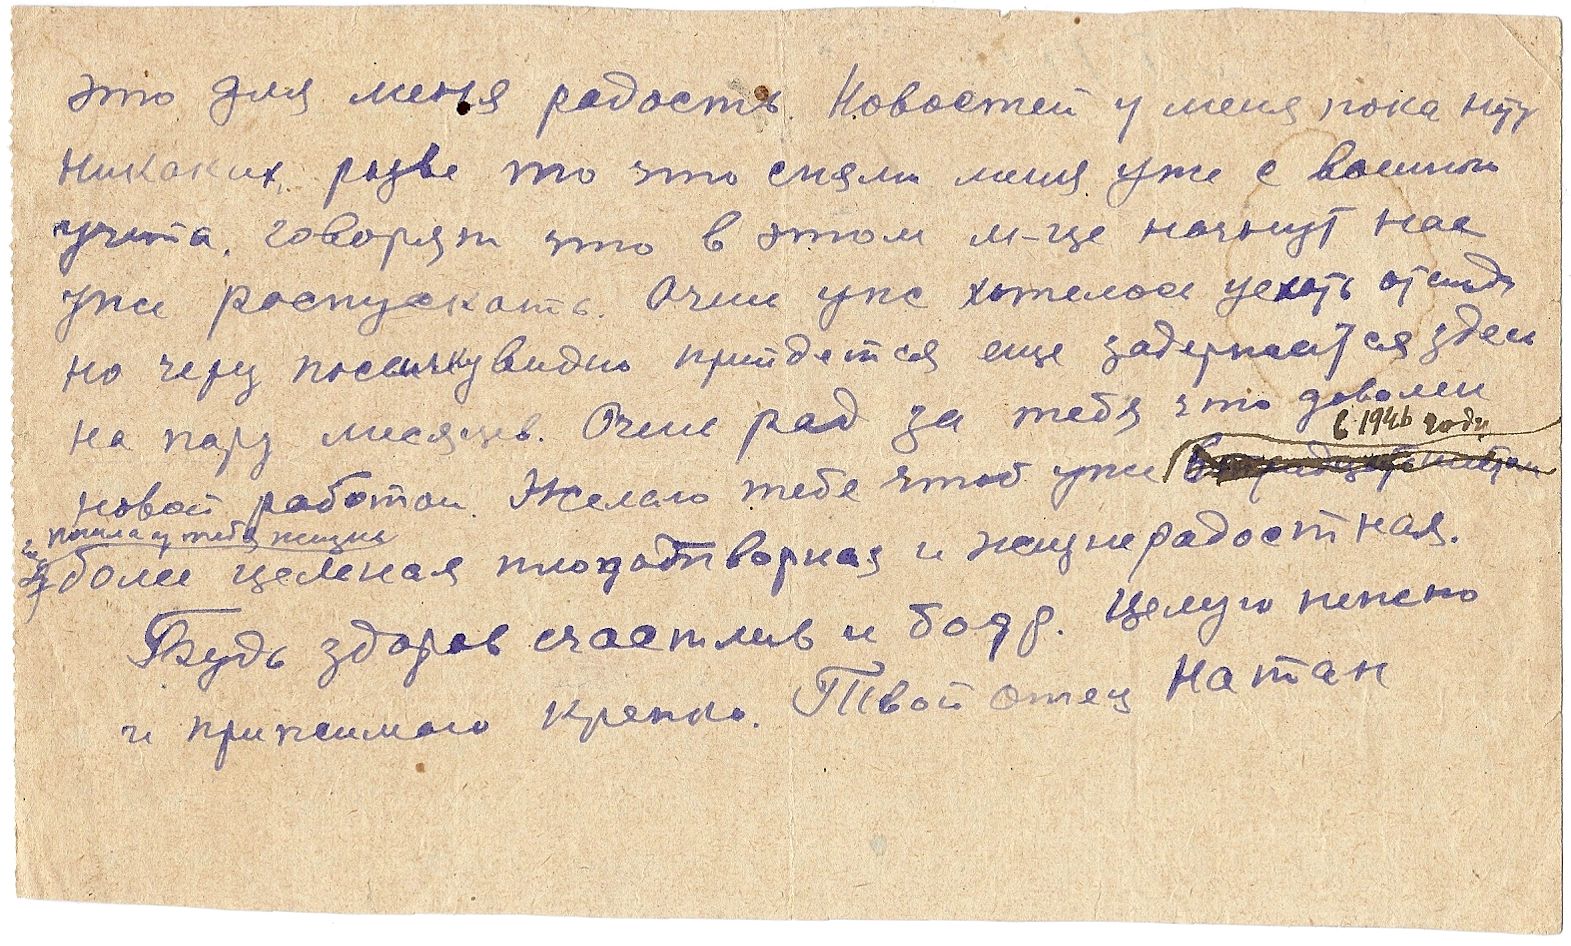 это для меня радость. Новостей у меня пока нту
никаких, разве то что сняли меня уже с военного
учета. говорят что в этом м-це начнут нас
уже роспускать. Очень уже хотелось уехать отсюда
но через посылку видно прийдется еще задержаться здесь
на пару месяцев. Очень рад за тебя что доволен
в 1946 году
новой работой. Желаю тебе чтоб уже
пошла у тебя жизнь
более целеная плодотворная и жизнерадостная.
Будь здоров счастлив и бодр. Целую нежно
и прижимаю крепко. Твой отец Натан